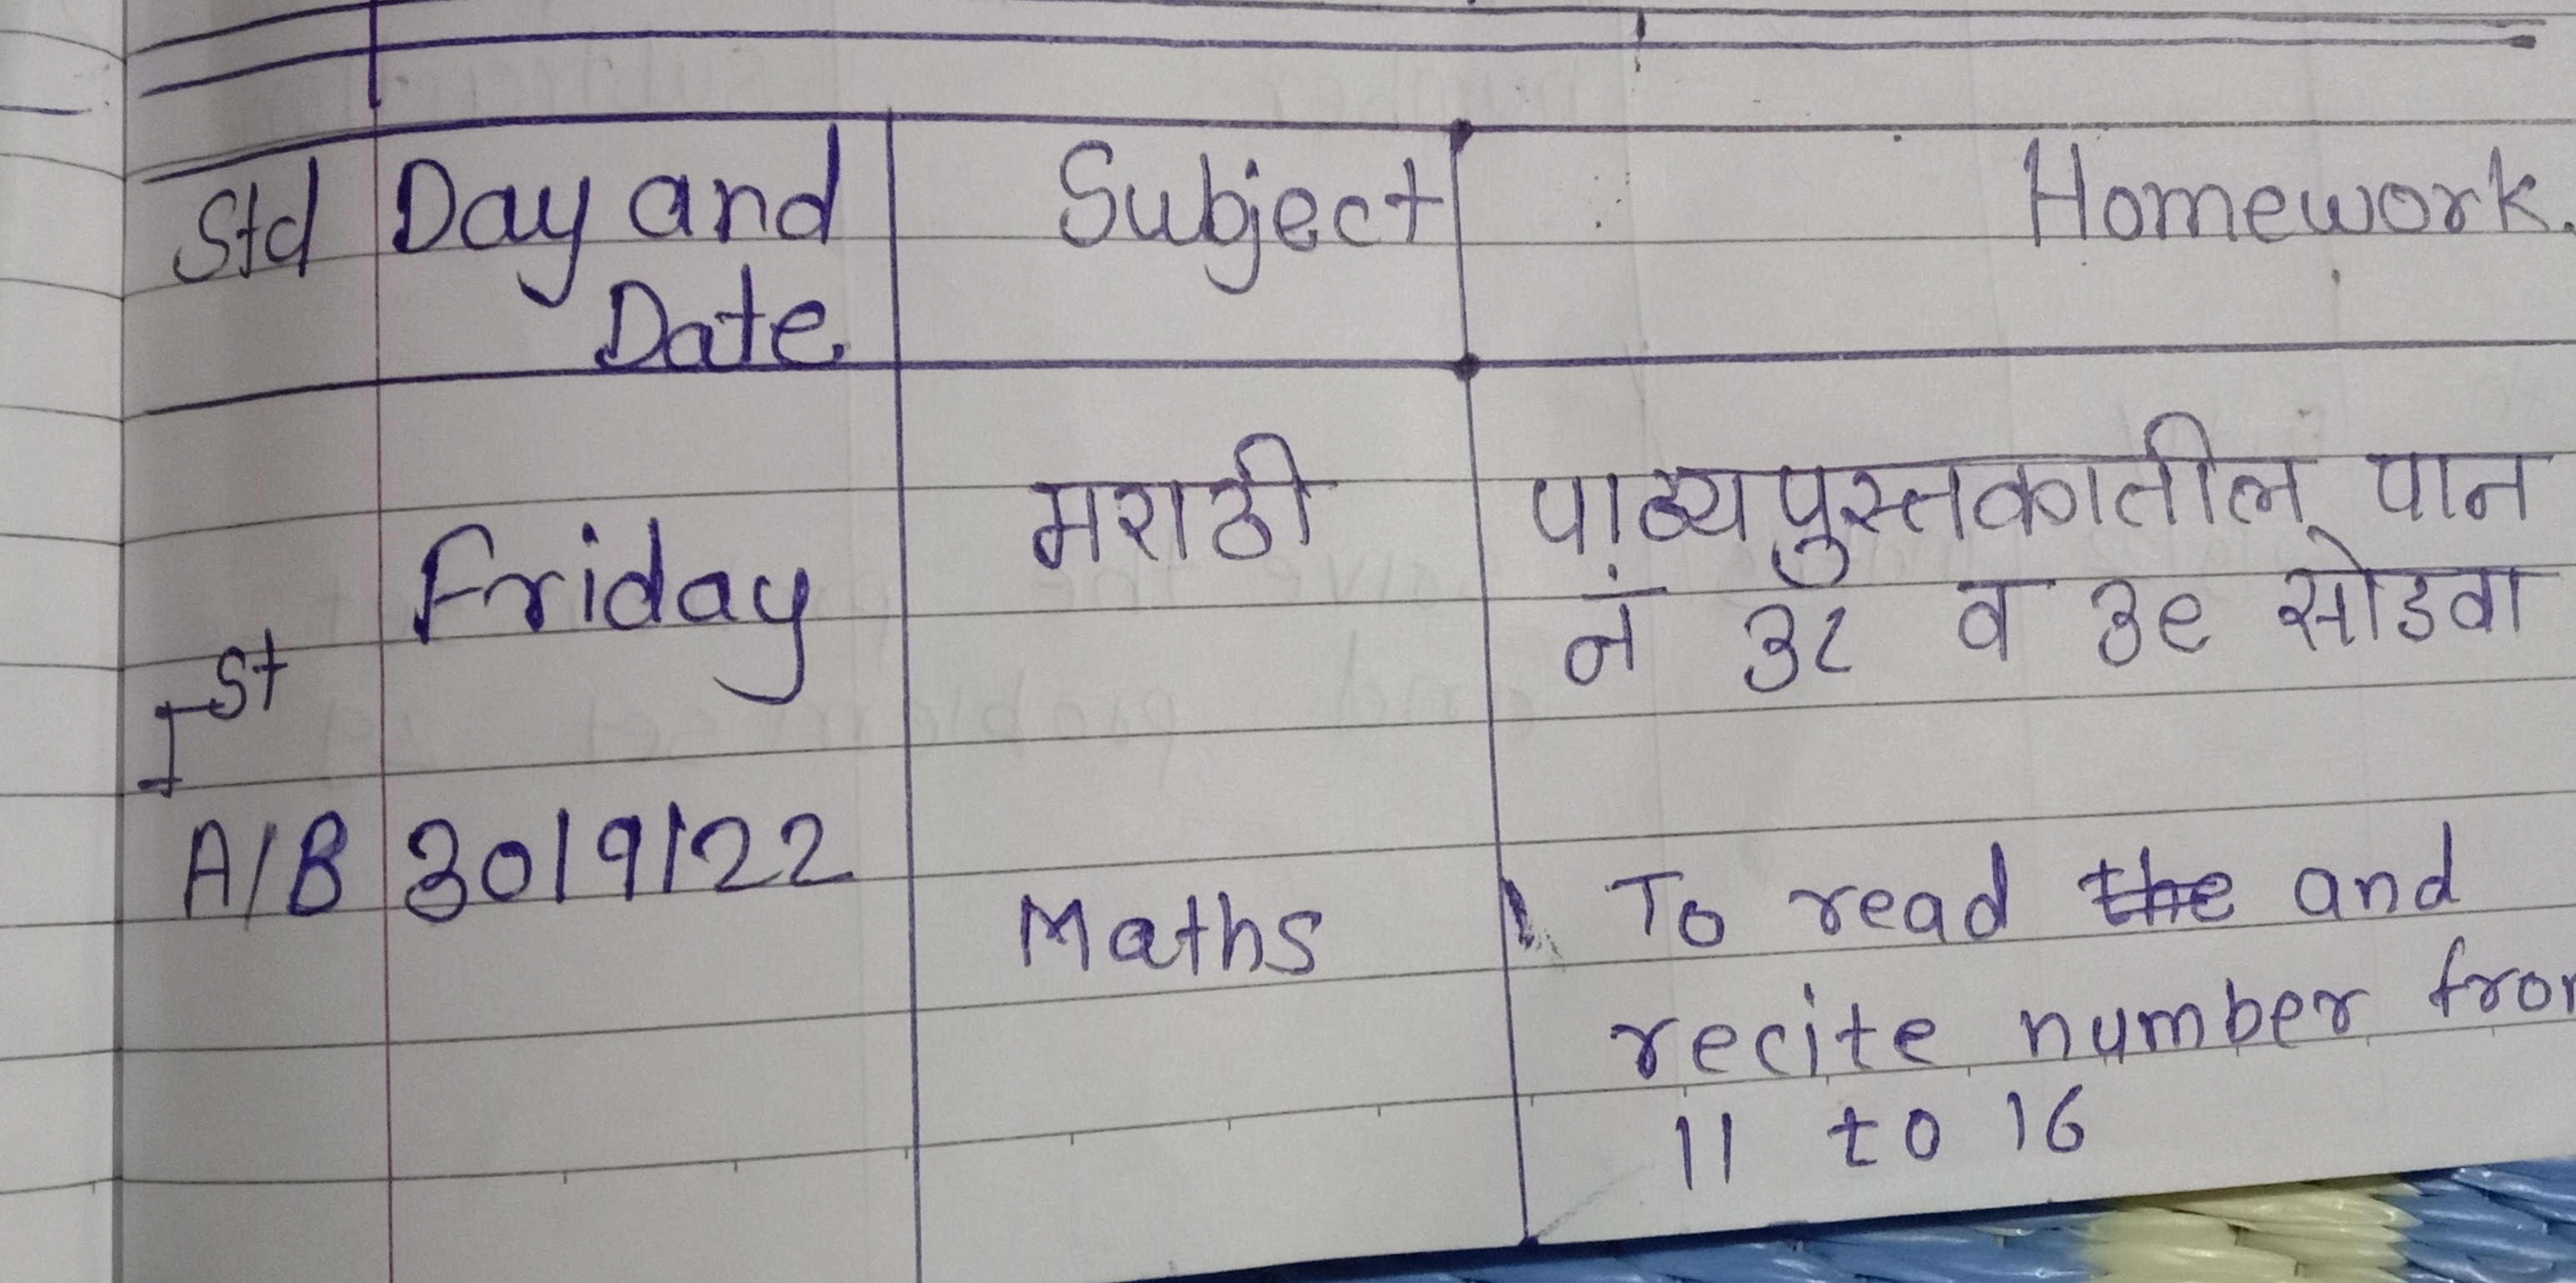 Std Day and Date Subject Homework.
Friday मराठी पाठ्यपुस्तकातील पान
नं ३८ व ३९ सोडवा
Ist
A/B 30/9/22
Maths To read the and
recite number from
11 to 16